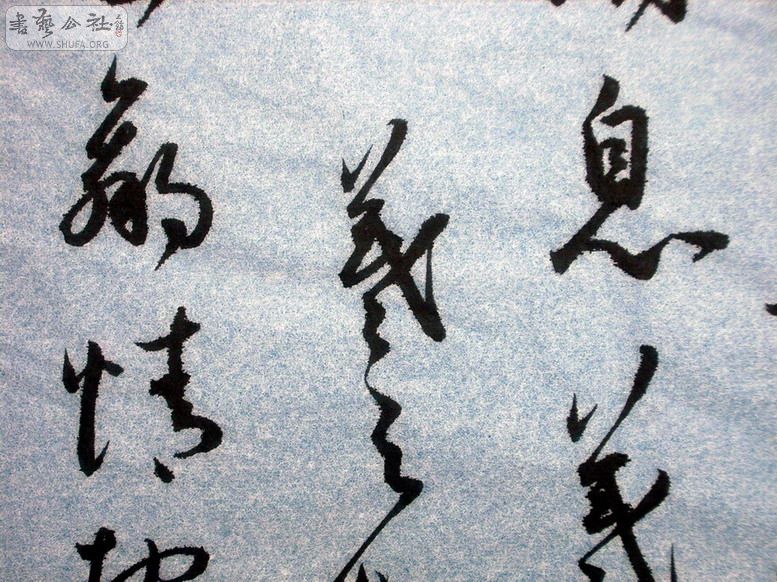 書藝公社
WWW.SHUFA.ORG
息羲
羲之
情地